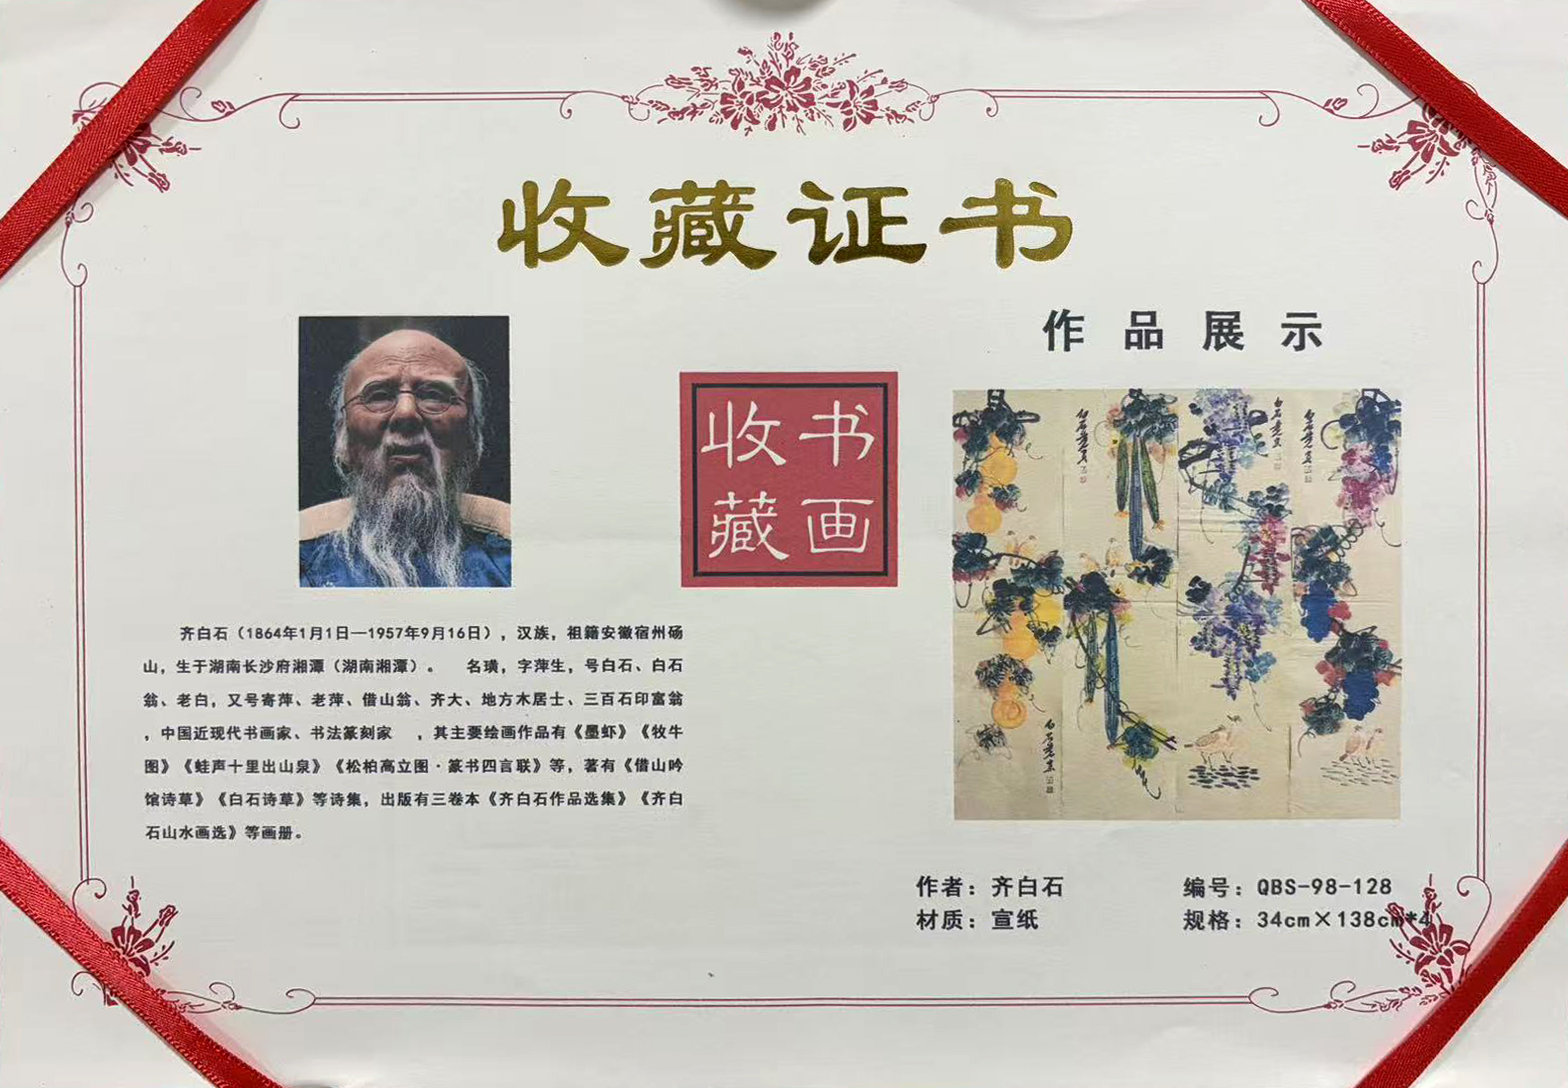 收藏证书
作品展示
收书
藏画
齐白石（1864年1月1日—1957年9月16日），汉族，祖籍安徽宿州砀
山，生于湖南长沙府湘潭（湖南湘潭）。 名璜，字萍生，号白石、白石
翁、老白，又号寄萍、老萍、借山翁、齐大、地方木居士、三百石印富翁
，中国近现代书画家、书法篆刻家 ，其主要绘画作品有《墨虾》《牧牛
图》《蛙声十里出山泉》《松柏高立图·篆书四言联》等，著有《借山吟
馆诗草》《白石诗草》等诗集，出版有三卷本《齐白石作品选集》《齐白
石山水画选》等画册。
作者：齐白石
材质：宣纸
编号：QBS-98-128
规格：34cm×138cm*4